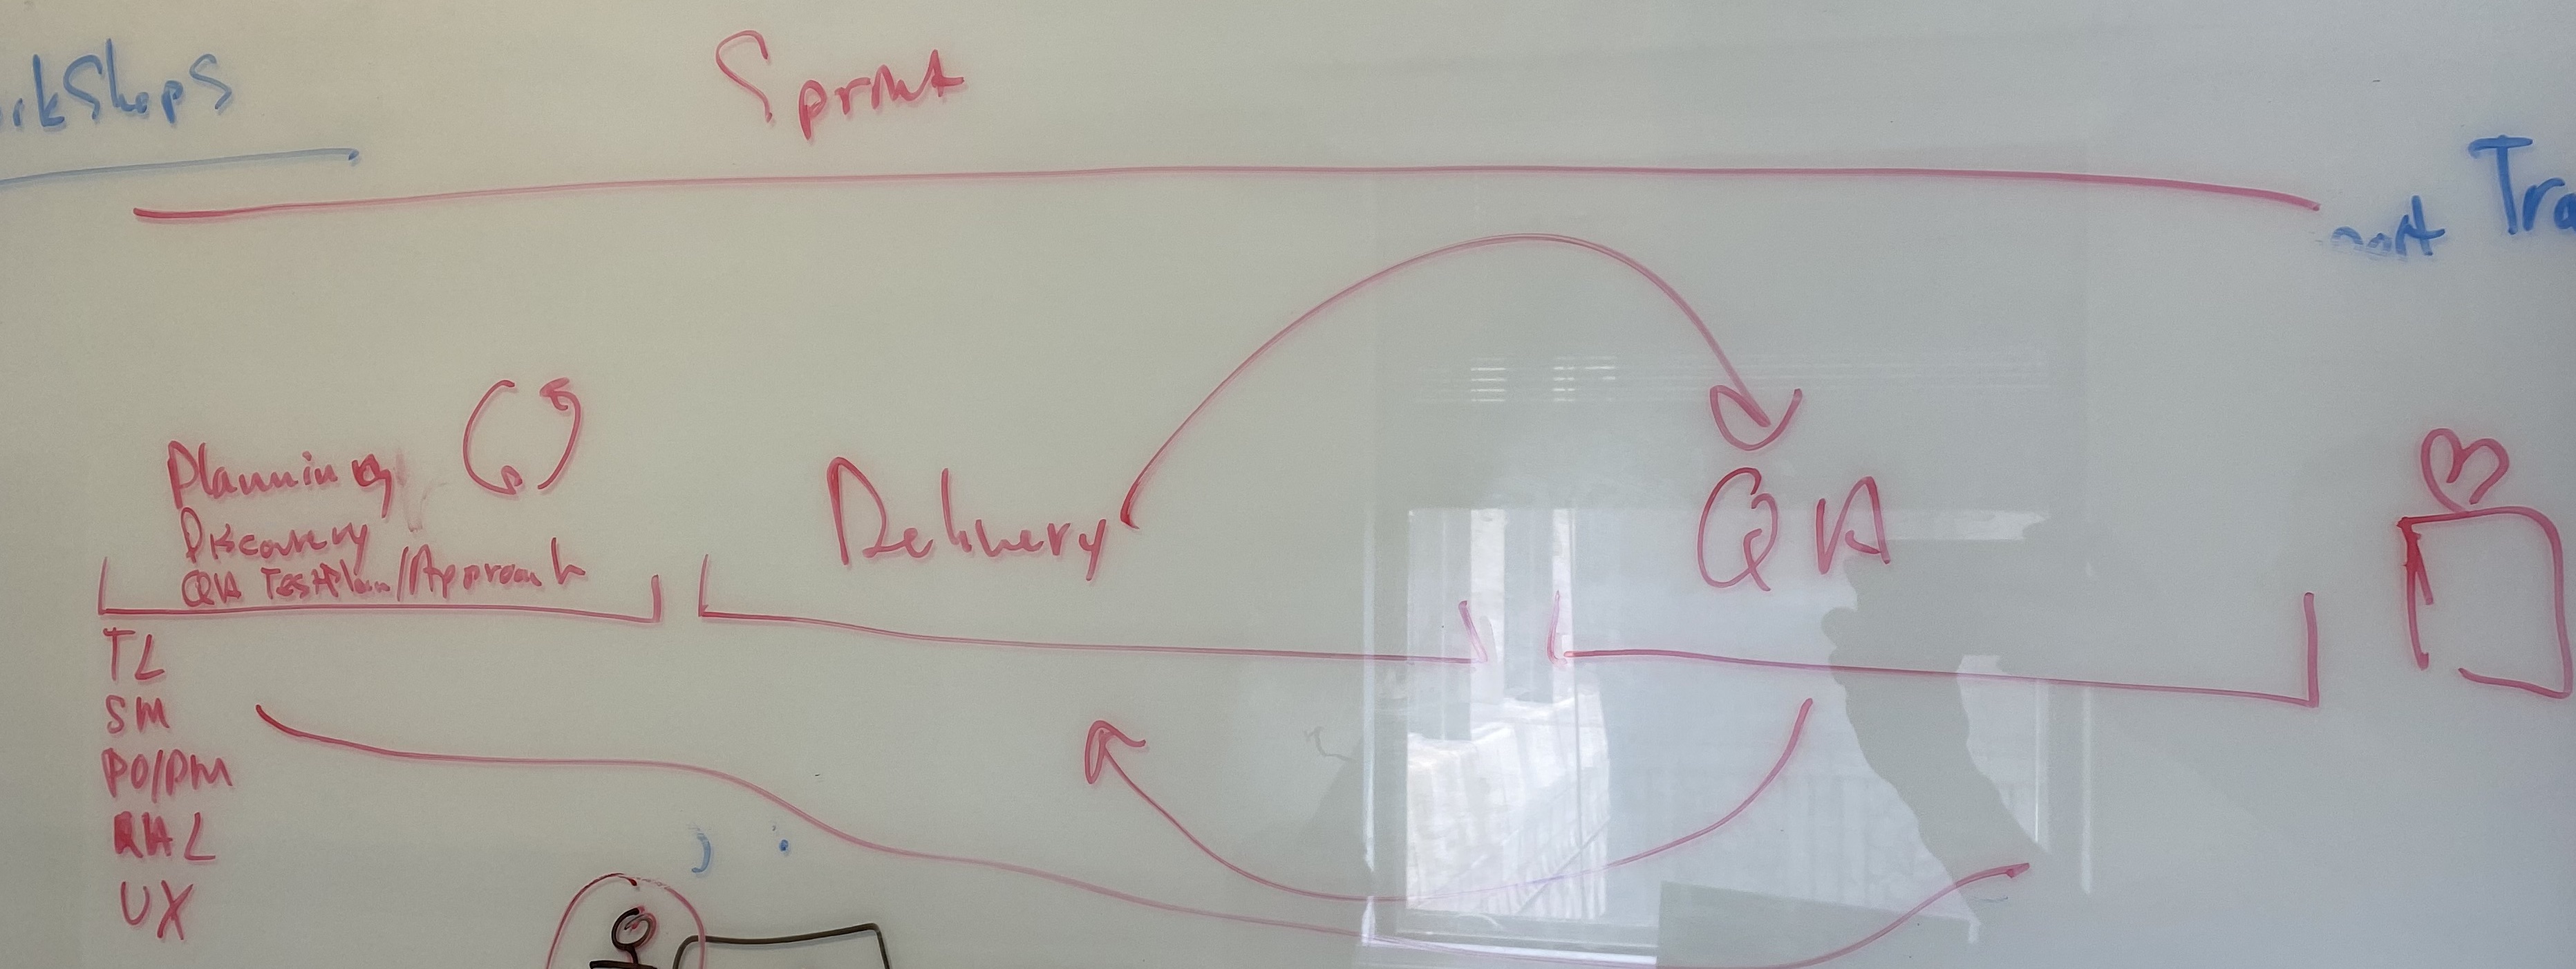 orkshops
Sprint
Planning
Discovery
QA TestPlan/Approach
Delivery
QA
TL
SM
PO/PM
QAL
UX